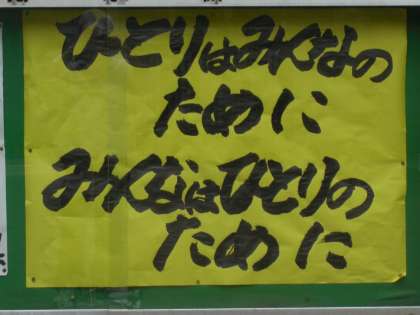 ひとりはみんなの
ために
みんなはひとりの
ために